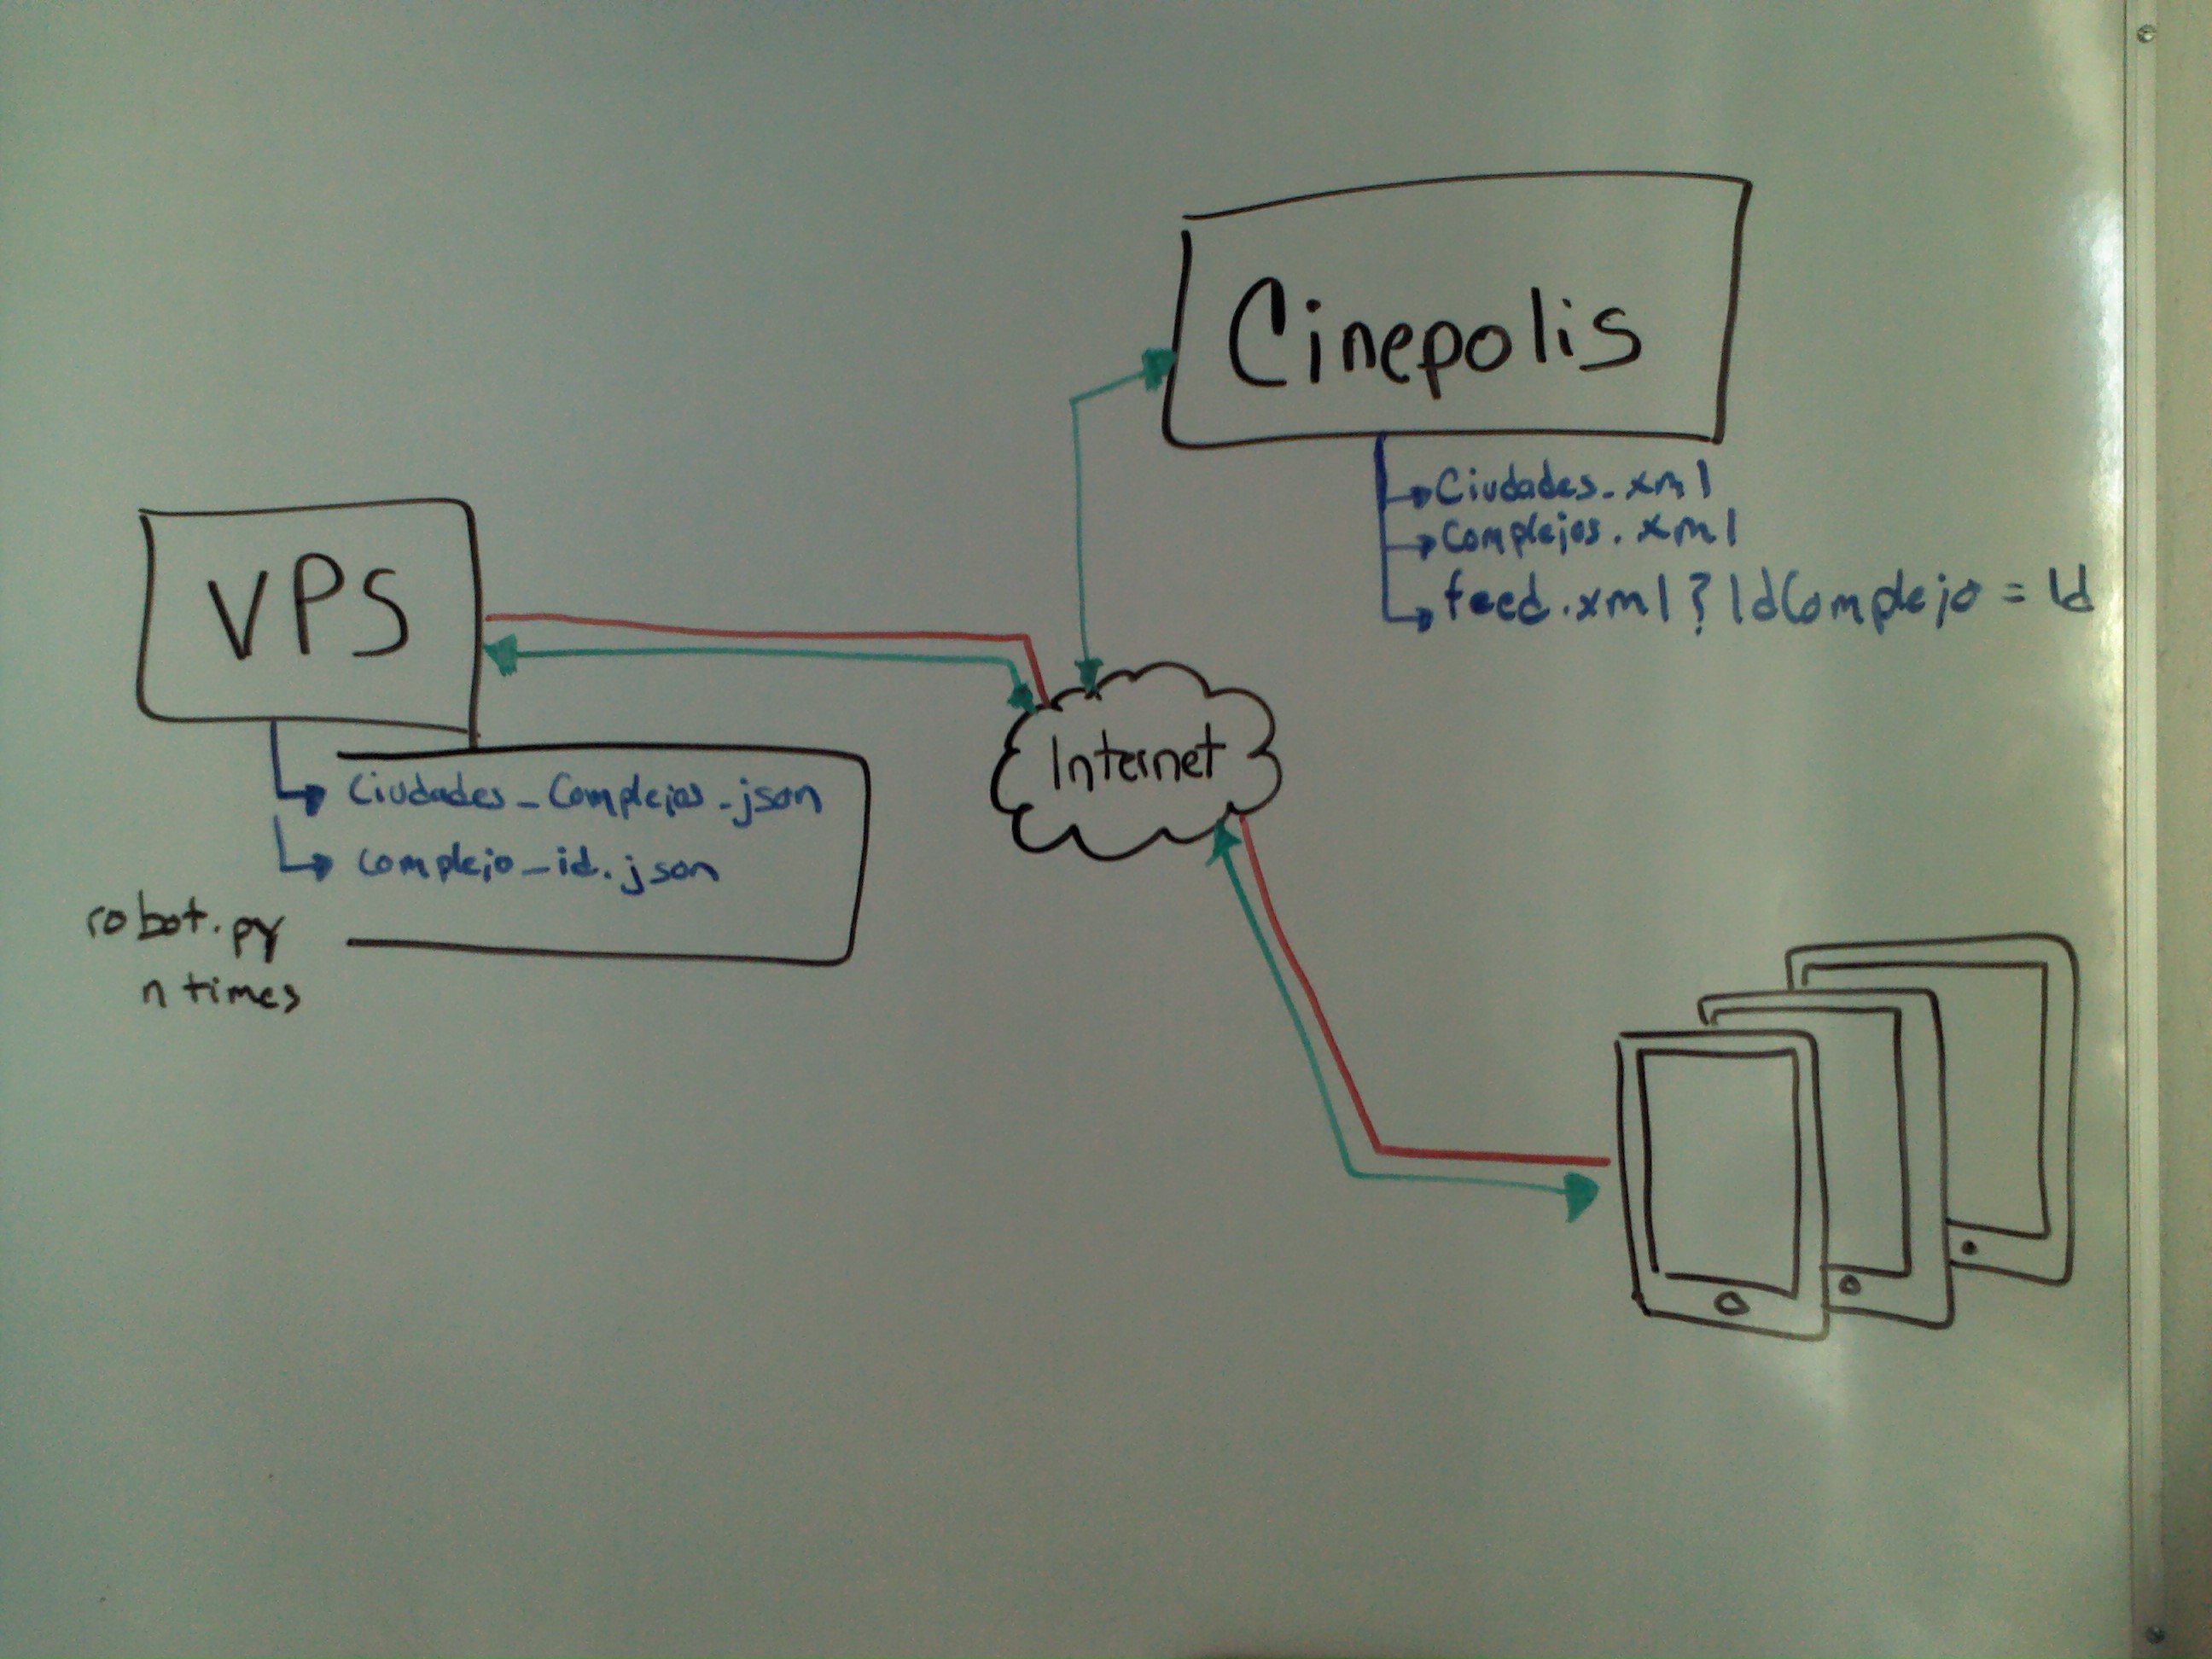 Cinepolis
Ciudades.xml
Complejos.xml
feed.xml?IdComplejo = Id
VPS
Internet
Ciudades_Complejos.json
complejo_id.json
robot.py
n times